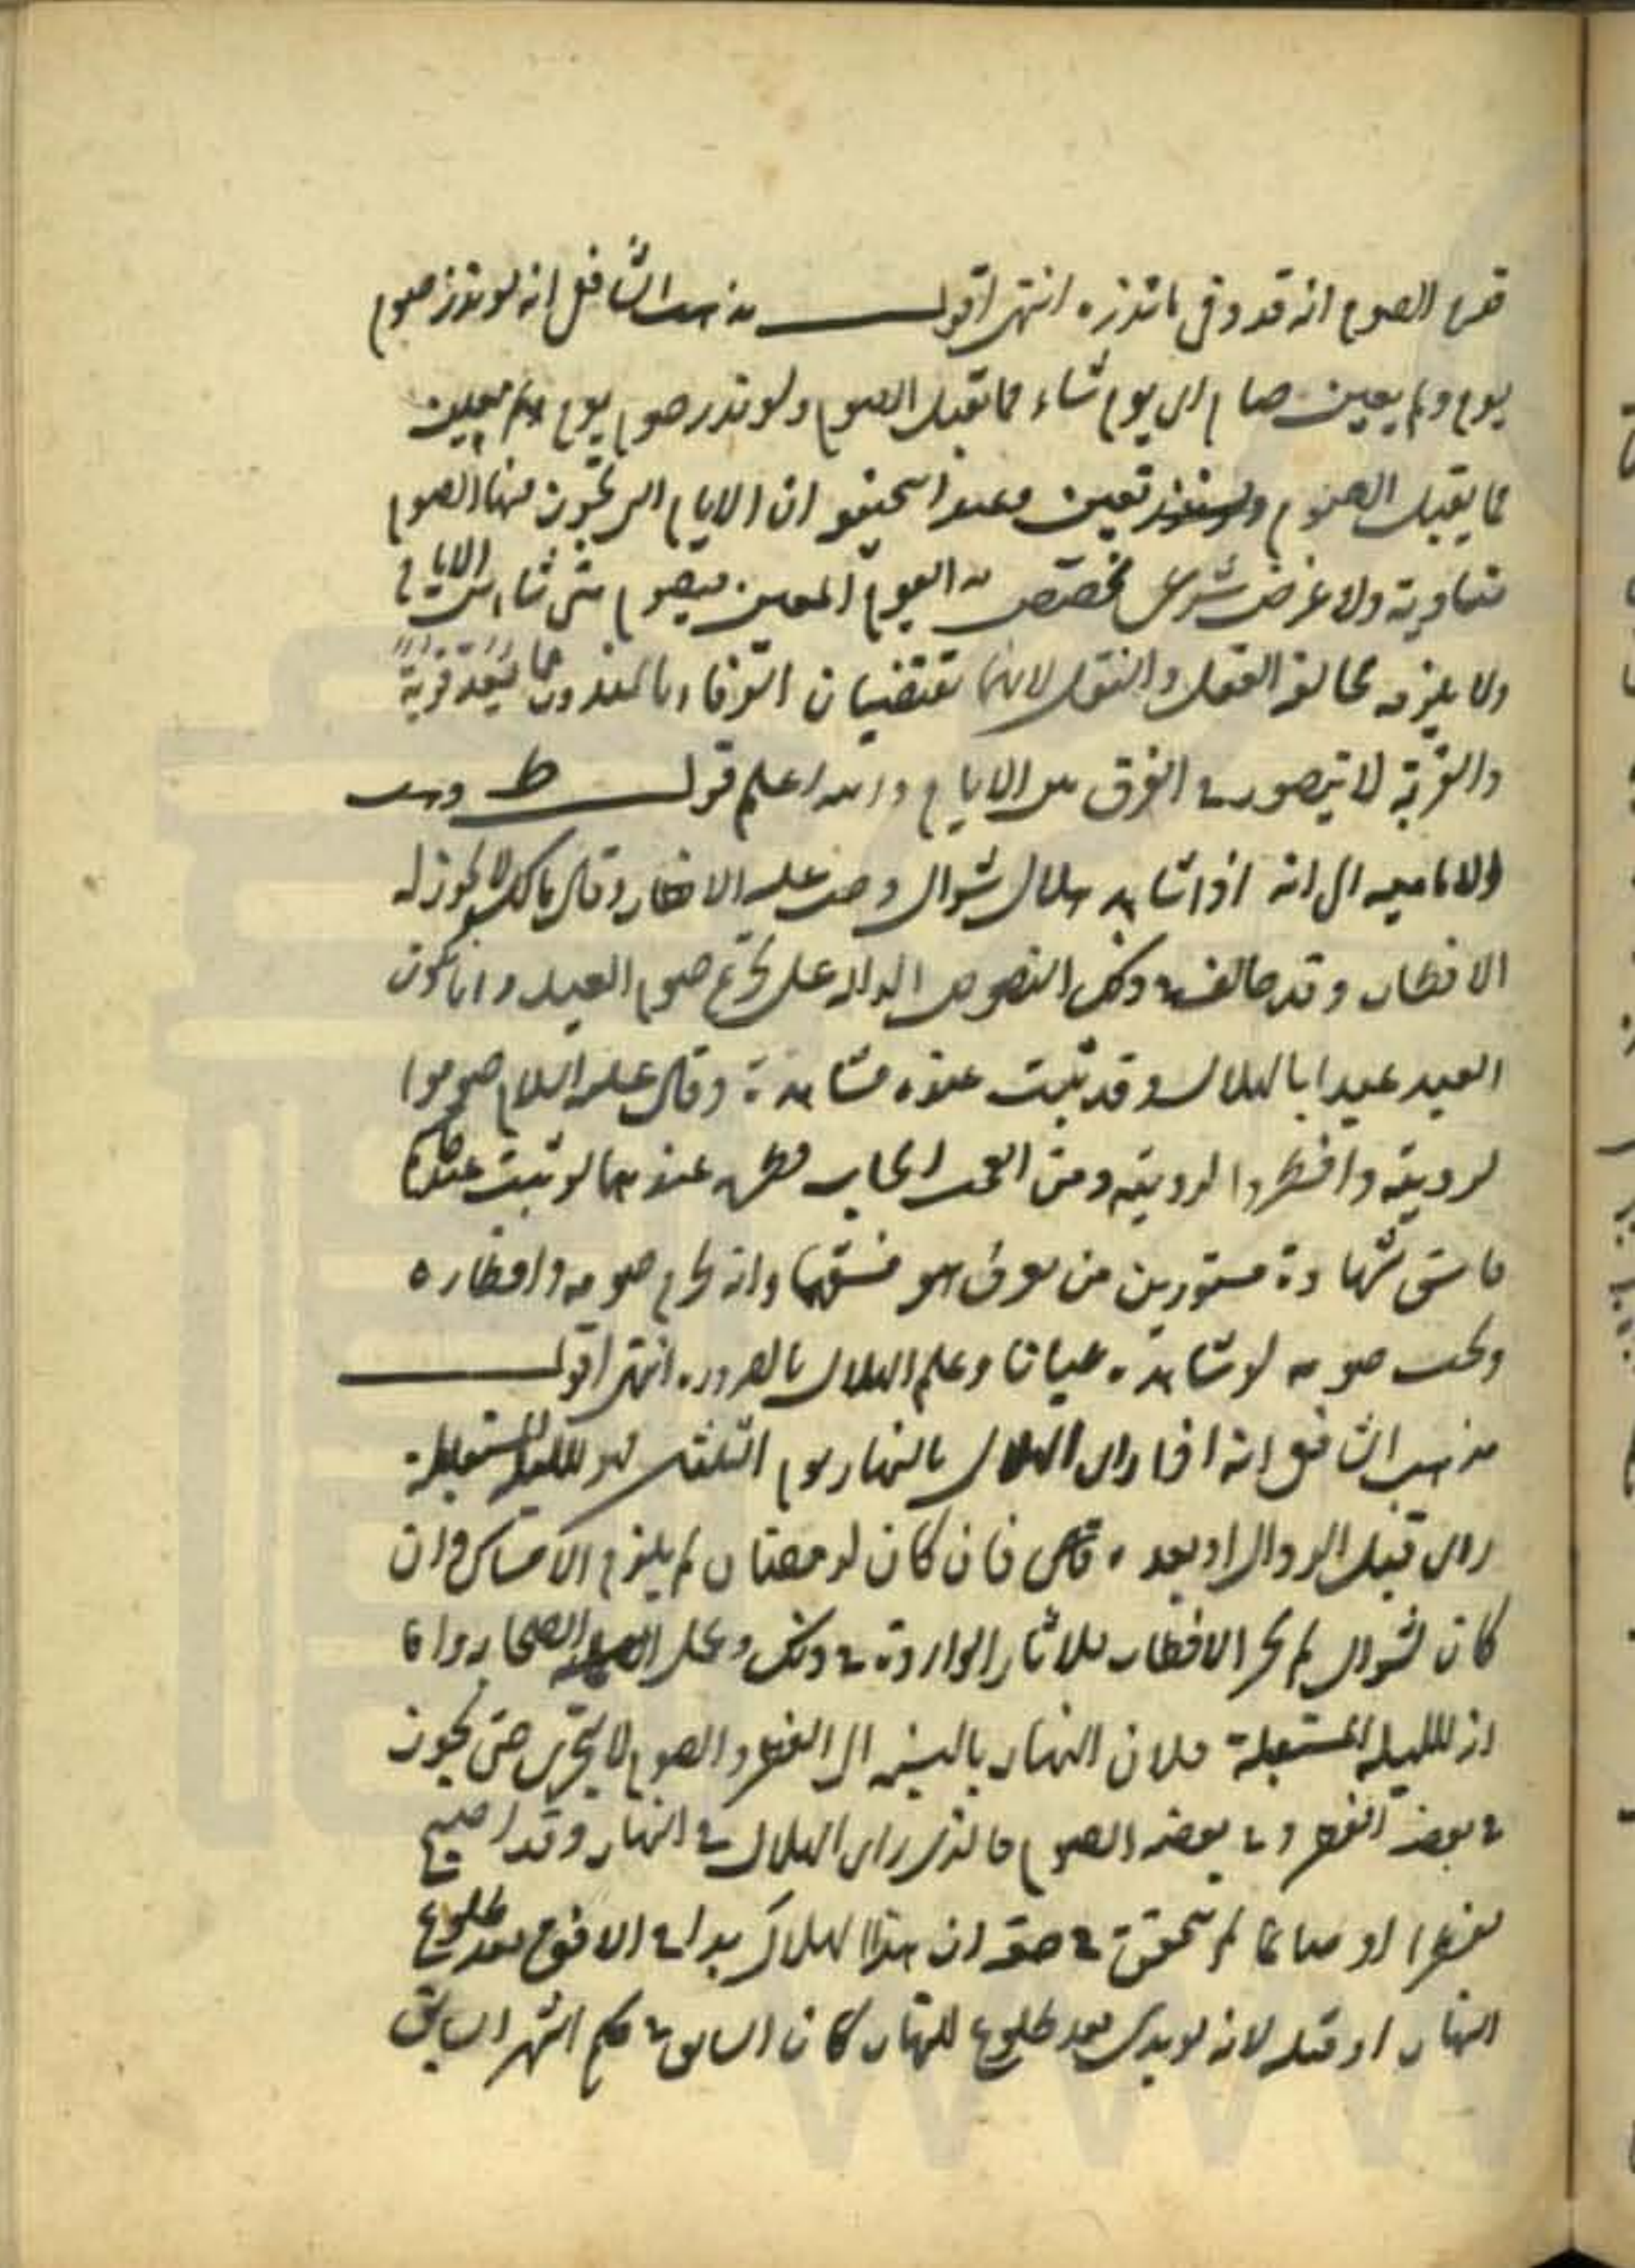 قدم الصوم انه قد وفى ما نذره انتهى اقول مذهب الشافعى انه لو نذر صوم
يوم ولم يعين صام اى يوم شاء مما تقبل الصوم ولو نذر صوم يوم معين
مما يقبل الصوم تعين وعند ان الايام التى تجوز فيها الصوم
متساوية ولا غرض شرعى مختص به اليوم المعين فيصوم متى شاء من الايام
ولا يلزمه مخالفة العقل والنقل لانهما تقتضيان الوفاء بالمنذور مما يعد قربة
والقربة لا تيصور فى الفرق بين الايام والله اعلم قول ط وذهبت
الاماميه الى انه اذا شاهد هلال شوال وجب عليه الافطار وقال مالك لا يجوز له
الافطار وقد خالف فى ذلك النصوص الداله على تحريم صوم العيد وانما يكون
العيد عيدا بالهلال وقد ثبت عنده مشاهدة وقال عليه السلام صوموا
لرويته وافطروا لرويته ومن العجب ايجاب فطره عندهما لو ثبت عند
فاسق شهادة مستورين من يعرف هو فسقهما وانه يحرم صومه وافطاره
ويجب صومه لو شاهده عيانا وعلم الهلال بالضروره انتهى اقول
مذهب الشافعى انه اذا راى الهلال بالنهار يوم الثلثين فهو لليلة المستقبلة
راى قبل الزوال او بعده فان كان لرمضان لم يلزم الامساك وان
كان لشوال لم يجز الافطار للاثار الواردة فى ذلك وعمل الصحابه واما
انه لليلة المستقبلة فلان النهار بالنسبة الى الفطر والصوم لا يتجزى حتى يجوز
فى بعضه الفطر وفى بعضه الصوم فالذى راى الهلال فى النهار وقد اصبح
مفطرا او صائما لم يتحقق فى حقه ان هذا الهلال بدا فى الافق بعد طلوع
النهار او قبله لانه لو بدى بعد طلوع النهار كان السابق فى حكم الشهر السابق